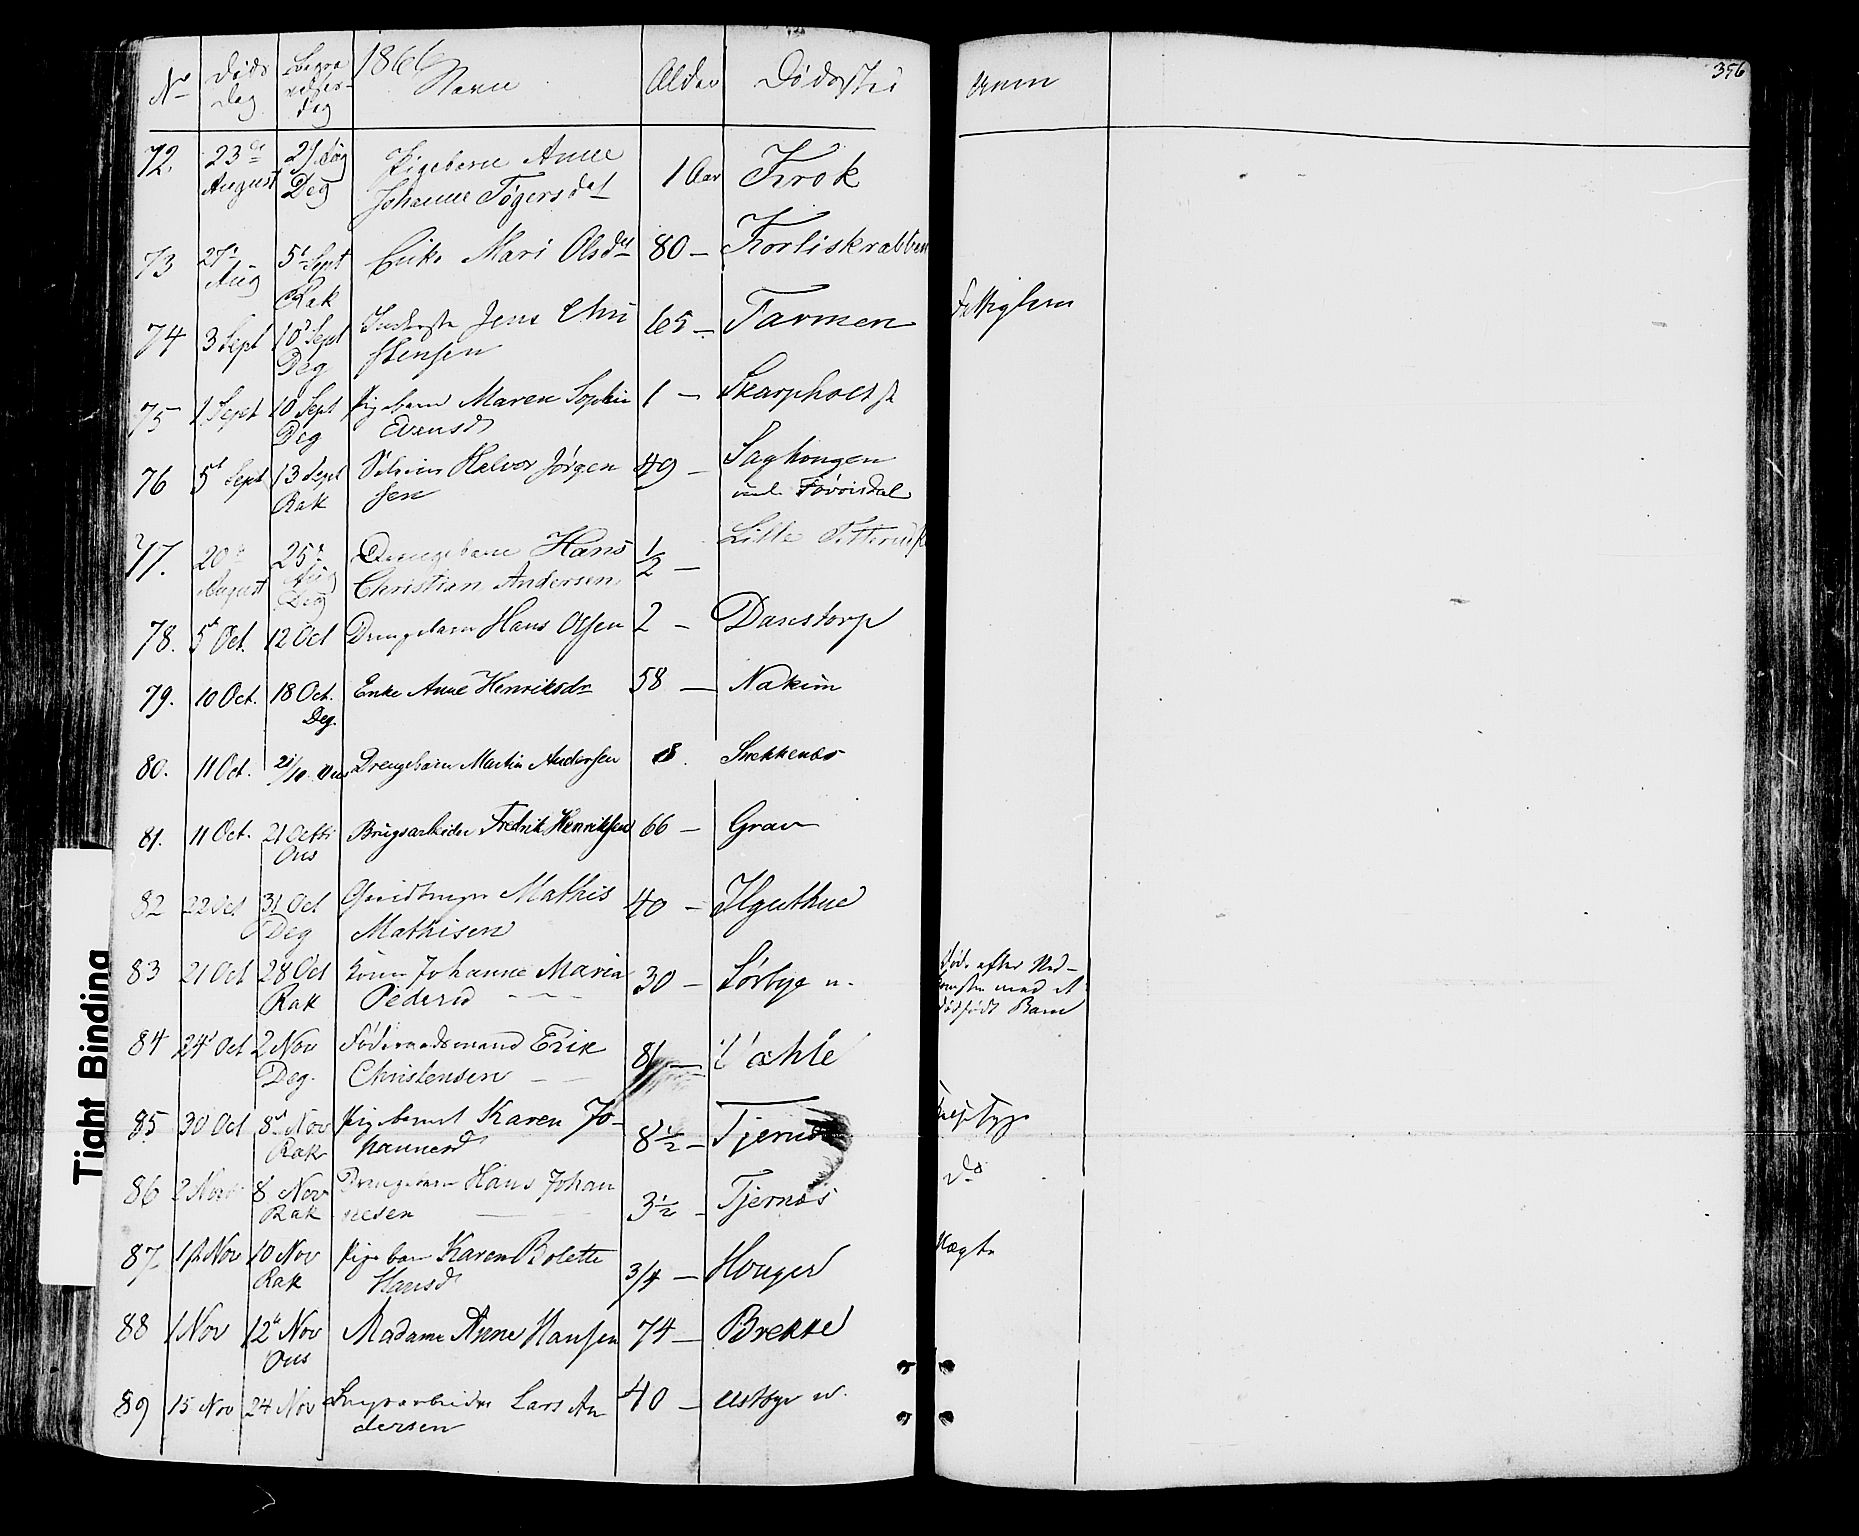 No Døds Dag Begravelses-dag 1866 Navn Alder Dødssted Anm 356
72. 23de August Deg Pigebarn Anne
Johanne Tøgersdt 1 Aar Krok
73 27de Aug 5t Sept Rak Enke Mari Olsdt 80 – Korliskrabben
74 3 Sept 10d Sept Deg Inderste Jens Chri
stensen 65 – Tarmen Fattiglem
75 1 Sept 10 Sept Deg Pigebarn Maren Sophie
Evensd 1 – Skarpholt
76 5t Sept 13 Sept Rak Halvor Jørgen
sen 49 – Saghougen
77. 20de August 25de Aug Deg Drengebarn Hans
Christian Andersen 1/2 – Lille
78. 5t Oct. 12 Oct Drengebarn Hans Olsen 2 – Danstorp
79. 10 Oct. 18 Oct. Deg. Enke Anne Henriksdr 58 – Nakim
80. 11 Oct. 21/10 Ous Drengebarn Martin Andersen 8. Snekkenæs
81. 11 Oct. 21 Octb Ous Brugsarbeider Fredrik Henriksen 66 – Grav
82 22 Oct 31 Oct Deg Mathis
Mathisen 40 –
83 21 Oct 28 Oct Rak Kone Johanne Maria
Pedersd 30 – Sørbye n. Død efter Ned-
komsten med et
dødfødt Barn
84 24d Oct 2 Nov Deg. Føderaadsmand Erik
Christensen 81 –
85 30 Oct 8d Nov Rak Pigebarnet Karen Jo-
hannesd 8 1/2 – Tjernæs
86 2 Nov 8 Nov Rak Drengebarn Hans Johan
nesen 3 1/2 – Tjernæs do
87 1ste Nov 10 Nov Rak Pigebarn Karen Bolette
Hansd 3/4 – Hougen
88 1 Nov 12te Nov Ous Madame Anne Hansen 74 – Brekke
89 15 Nov 24 Nov Lars An
dersen 40 – Østbye n.
Tight Binding